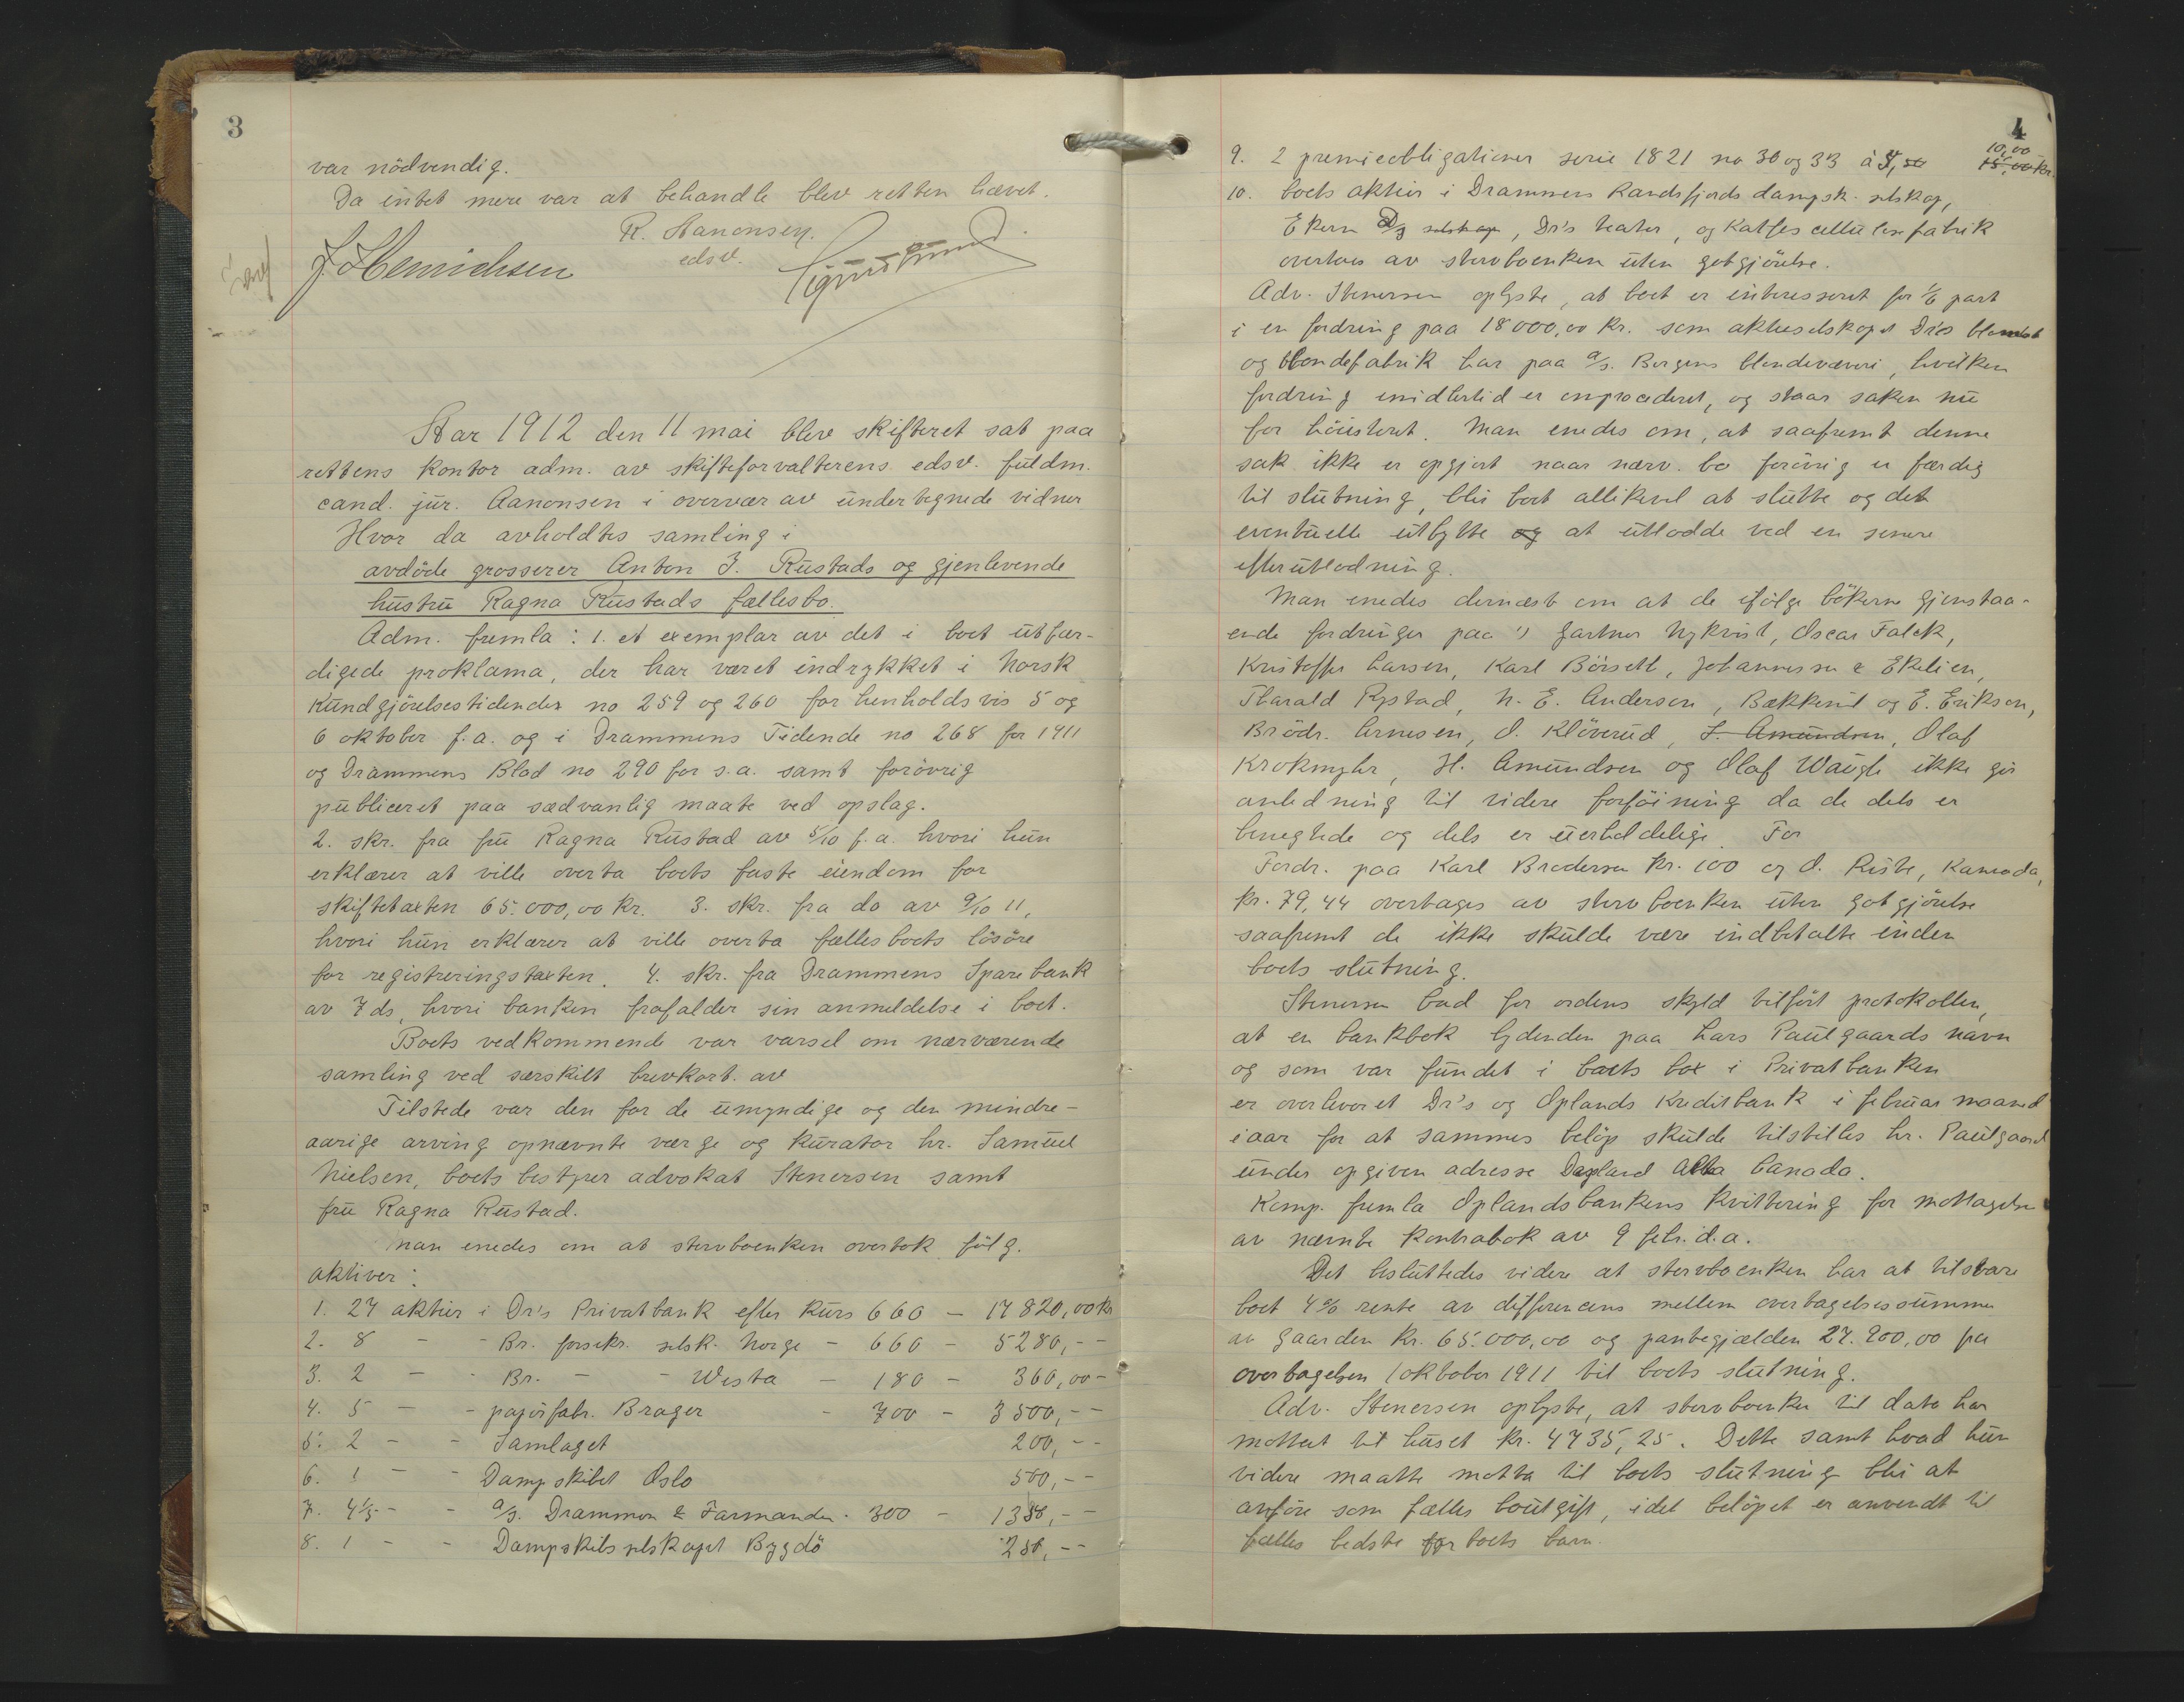 3
var nödvendig.
Da intet mere var at behandle blev retten hævet.
R. Aanonsen.
edsv.
J. Henrichsen
Aar 1912 den 11 mai blev skifteret sat paa
rettens kontor adm. av skifteforvalterens edsv. fuldm.
cand. jur. Aanonsen i overvær av undertegnede vidner
Hvor da avholdtes samling i
avdöde grosserer Anton J. Rustads og gjenlevende
hustru Ragna Rustads fællesbo.
Adm. fremla: 1. et exemplar av det i boet utfær-
digede proklama, der har været indrykket i Norsk
Kundgjörelsestidender no 259 og 260 for henholdsvis 5 og
6 oktober f.a. og i Drammens Tidende no 268 for 1911
og Drammens Blad no 290 for s.a. samt forövrig
publiceret paa sædvanlig maate ved opslag.
2. skr. fra fru Ragna Rustad av 5/10 f.a. hvori hun
erklærer at ville overta boets faste eiendom for
skiftetaxten 65.000,00 kr. 3. skr. fra do av 9/10 11,
hvori hun erklærer at ville overta fællesboets lösöre
for registreringstaxten. 4. skr. fra Drammens Sparebank
av 7 ds, hvori banken frafalder sin anmeldelse i boet.
Boets vedkommende var varsel om nærværende
samling ved særskilt brevkort. av
Tilstede var den for de umyndige og den mindre-
aarige arving opnævnte værge og kurator hr. Samuel
Nielsen, boets bestyrer advokat Stenersen samt
fru Ragna Rustad.
Man enedes om at stervboenken overtok fölg.
aktiver:
1. 27 aktier i Dr's Privatbank efter kurs 660 — 17820,00 kr
2. 8 - - Br. forsikr. selsk. Norge - 660 - 5280,--
3. 2 - - Br. - - Vesta - 180 - 360,00-
4. 5 - - papirfabr. Brager - 700 - 3500,--
5. 2 - - Samlaget 200,--
6. 1 - - Dampskibet Oslo 500,--
7. 4 1/2 - - A/S. Drammen & Farmanden - 300 - 1350,--
8. 1 - - Dampskibsselskapet Bygdö 250,--
4
9. 2 premieobligationer serie 1821 no 30 og 33 à 5,00 10,00 15,00 kr.
10. boets aktier i Drammens Randsfjords dampsk. selskap,
Ekern D/S selskap, Dr's teater, og Katfos cellulosefabrik
overtas av stervboenken uten gotgjörelse.
Adv. Stenersen oplyste, at boet er interesseret for 1/6 part
i en fordring paa 18000,00 kr. som aktieselskapet Dr's
og blondefabrik har paa A/S. Bergens blondeveveri, hvilken
fordring imidlertid er omprocederet, og staar saken nu
for höiesteret. Man enedes om, at saafremt denne
sak ikke er opgjort naar nærv. bo forövrig er færdig
til slutning, blir boet allikevel at slutte og det
eventuelle utbytte og at utlodde ved en senere
efterutlodning.
Man enedes dernæst om at de ifölge bökerne gjenstaa-
ende fordringer paa: Gartner Nykvist, Oscar Falck,
Kristoffer Larsen, Karl Börseth, Johannessen & Ekelien,
Harald Rystad, N. E. Andersen, Bækkevil og E. Eriksen,
Brödr. Arnesen, O. Klöverud, J. Amundsen, Olaf
Krokmyhr, H. Amundsen og Olaf Waugle ikke gir
anledning til videre forföining da de dels er
benegtede og dels er uerholdelige. For
Fordr. paa Karl Brodersen kr. 100 og O. Riste, Kanada,
kr. 79,44 overtages av stervboenken uten gotgjörelse
saafremt de ikke skulde være indbetalte inden
boets slutning.
Stenersen bad for ordens skyld tilfört protokollen,
at en bankbok lydenden paa Lars Paulgaards navn
og som var fundet i boets box i Privatbanken
er overleveret Dr's og Oplands Kreditbank i februar maaned
iaar for at sammes belöp skulde tilstilles hr. Paulgaard
under opgiven adresse Daysland Alta Canada.
Komp. fremla Oplandsbankens kvittering for mottagelsen
av nævnte kontrabok av 9 febr. d.a.
Det besluttedes videre at stervboenken har at tilsvare
boet 4% rente av differencen mellem overtagelsessummen
av gaarden kr. 65.000,00 og pantegjælden 27.200,00 fra
overtagelsen 1 oktober 1911 til boets slutning.
Adv. Stenersen oplyste, at stervboenken til dato har
mottat til huset kr. 4735,25. Dette samt hvad hun
videre maatte motta til boets slutning blir at
anföre som fælles boutgift, idet belöpet er anvendt til
fælles bedste for boets barn.